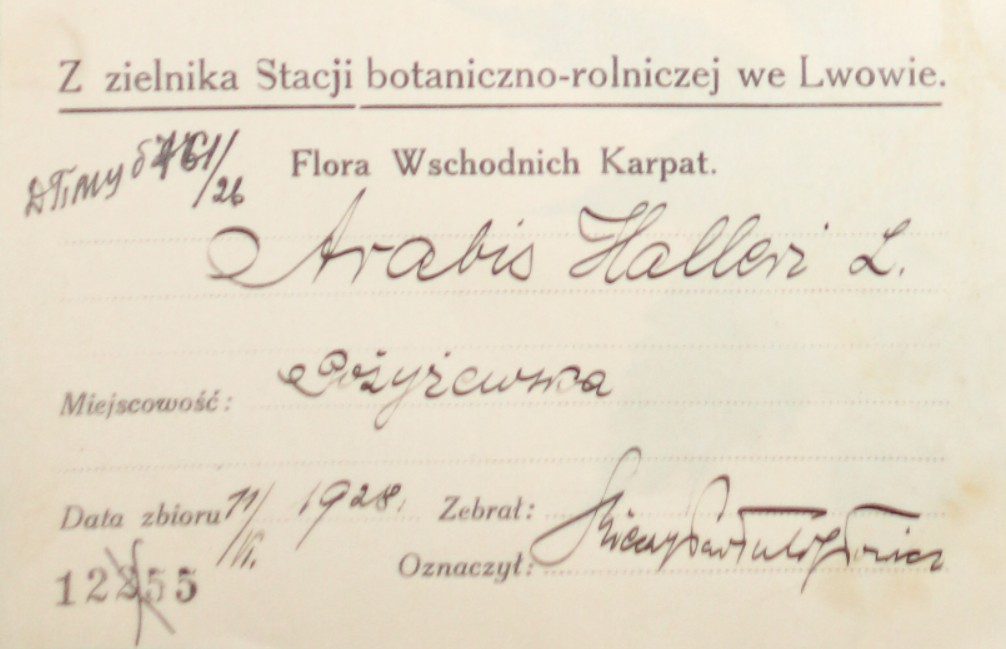 Z zielnika Stacji botaniczno-rolniczej we Lwowie.
Flora Wschodnich Karpat.
Arabis Halleri L.
Miejscowość: Pożyżewska
Data zbioru 11/VI. 1928. Zebrał:
Oznaczył:
12255